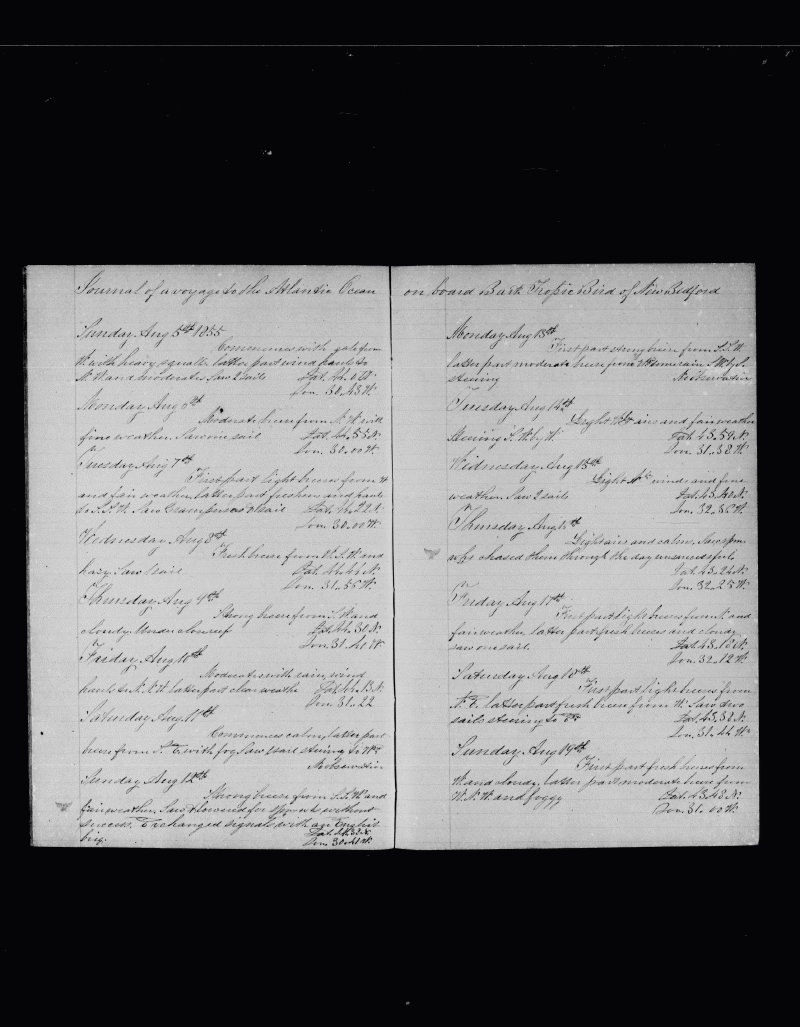 Journal of a voyage to the Atlantic Ocean
Sunday Aug 5th 1855
Commences with gale from
W. with heavy squalls latter part wind hauls to
N. W and moderates Saw 2 sails Lat. 44. N.
Lon. 30.43 W.
Monday Aug 6th
Moderate breeze from N. W with
fine weather. Saw one sail Lat. 44.55 N.
Lon. 30.00 W.
Tuesday Aug 7th
First part light breeze from W
and fair weather, latter part freshens and hauls
to S.S.W. Saw Grampuses 1 sail Lat. 44.22 N.
Lon. 30.00 W.
Wednesday Aug 8th
Fresh breeze from W.S.W. and
hazy. Saw 1 sail Lat. 44.44 N.
Lon. 31.55 W.
Thursday Aug 9th
Strong breeze from S.W. and
cloudy. Under close reef Lat. 44.30 N.
Lon. 31.40 W.
Friday Aug 10th
Moderate with rain, wind
hauls to N.N.W. latter part clear weather Lat. 44.13 N.
Lon. 31.22
Saturday Aug 11th
Commences calm, latter part
breeze from S.E. with fog. Saw 1 sail steering to W.
No Observation
Sunday Aug 12th
Strong breeze from S.S.W. and
fair weather. Saw & lowered for without
success. Exchanged signals with an English
brig. Lat. 44.32 N.
Lon. 30.41 W.
on board Bark Tropic Bird of New Bedford
Monday Aug 13th
First part strong breeze from S.S.W.
latter part moderate breeze from W. rain S.W. by S.
steering No Observation
Tuesday Aug 14th
Light airs and fair weather
Steering S.W. by W. Lat. 43.59 N.
Lon. 31.38 W.
Wednesday Aug 15th
Light winds and fine
weather. Saw 2 sails Lat. 43.40 N.
Lon. 32.35 W.
Thursday Aug 16th
Light airs and calms, Saw sperm
whs chased them through the day unsuccessful
Lat. 43.24 N.
Lon. 32.25 W.
Friday Aug 17th
First part light breeze from N. and
fair weather latter part fresh breeze and cloudy
saw one sail. Lat. 43.18 N.
Lon. 32.12 W.
Saturday Aug 18th
First part light breeze from
N.E. latter part fresh breeze from W. Saw two
sails steering to E Lat. 43.32 N.
Lon. 31.44 W.
Sunday Aug 19th
First part fresh breeze from
W. and cloudy, latter part moderate breeze from
W.N.W. and foggy Lat. 43.48 N.
Lon. 31.00 W.